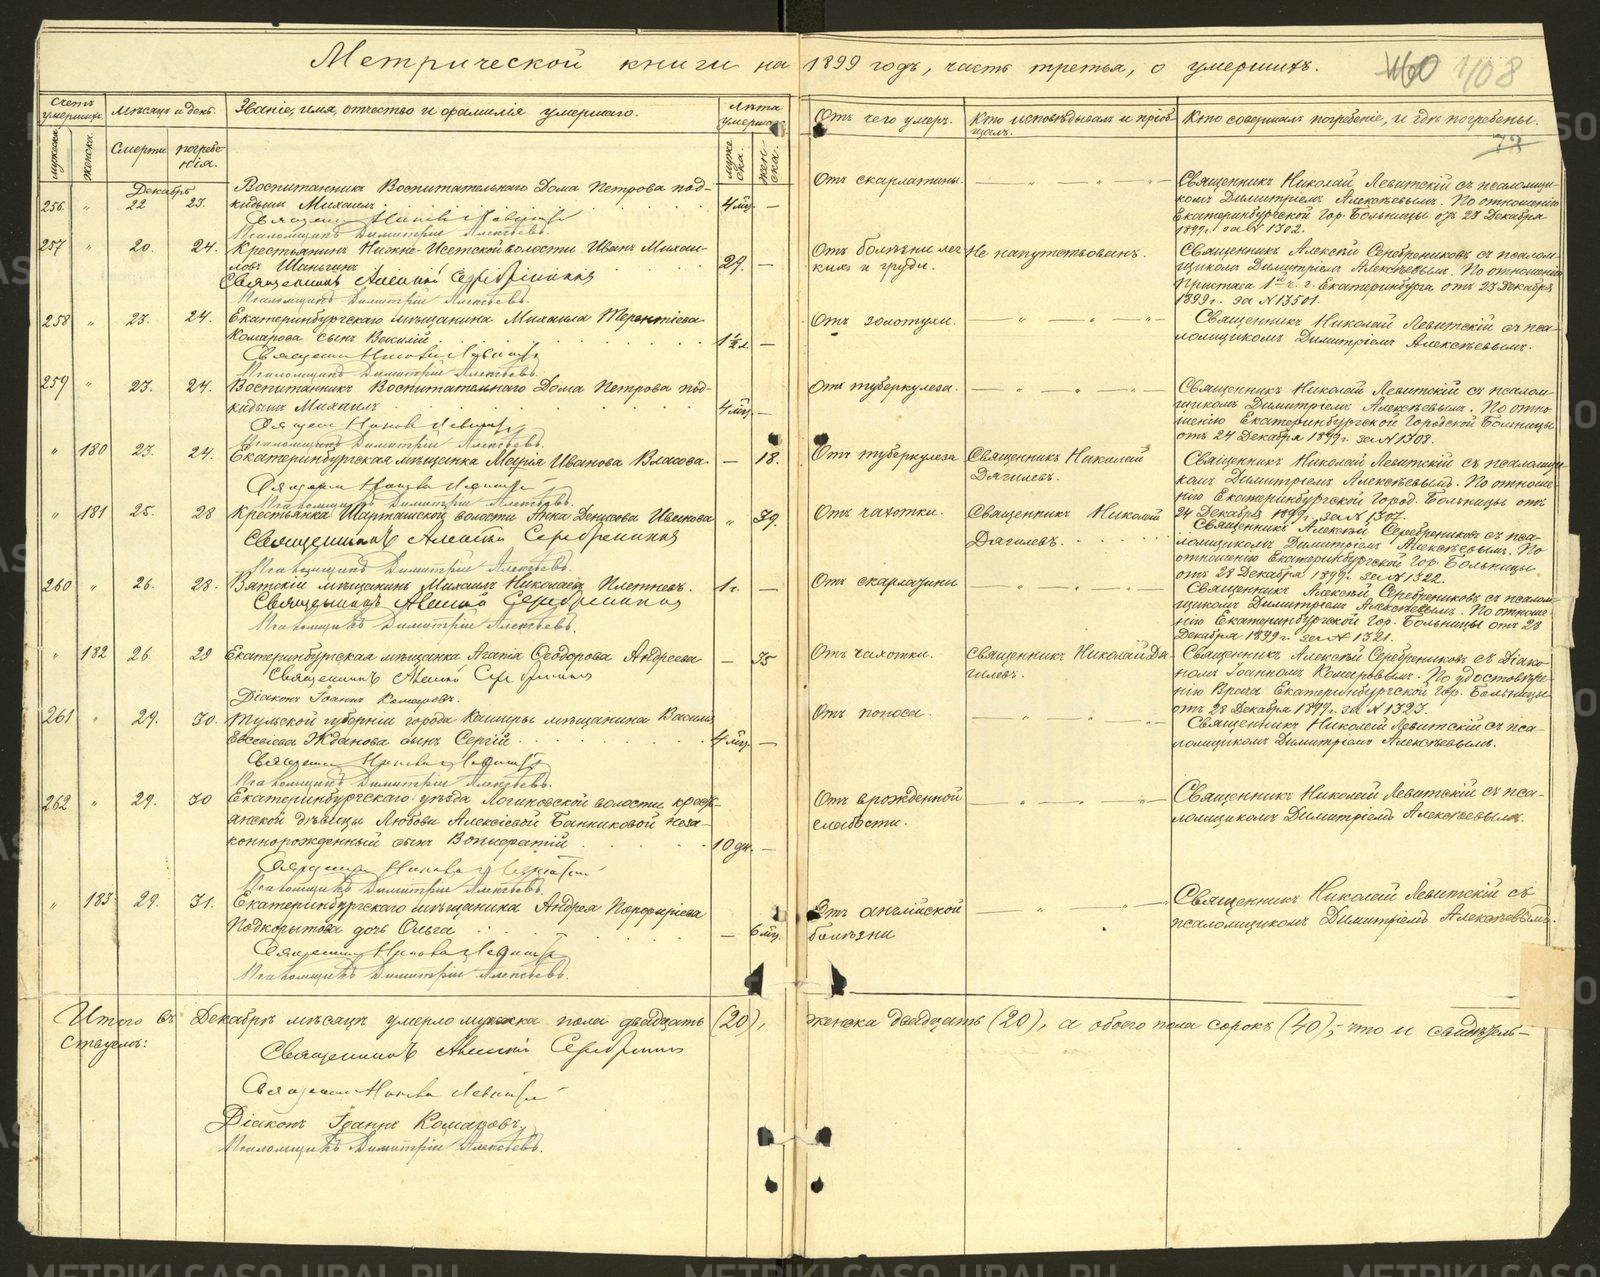 Метрической книги на 1899 годъ, часть третья, о умершихъ.
460 408
73
Счетъ умершихъ.
Мѣсяцъ и день.
Званіе, имя, отчество и фамилія умершаго.
Лѣта умершаго
Отъ чего умеръ.
Кто исповѣдывалъ и пріобщалъ.
Кто совершалъ погребеніе, и гдѣ погребены.
мужска.
женска.
Смерти
погребенія.
мужеска.
женска.
Декабрь
256. " 22 23. Воспитанникъ Воспитательнаго Дома Петрова под-
кидышъ Михаилъ. 4 мѣс. —
Отъ скарлатины.
Священникъ Николай Левитскій съ псаломщи-
комъ Димитріемъ Алексѣевымъ. По отношенію
Екатеринбургской Гор. Больницы отъ 23 Декабря
1899 г. за № 1302.
Священникъ Николай Левитскій
Псаломщикъ Димитрій Алексѣевъ.
257 " 20. 24. Крестьянинъ Нижне-Исетской волости Иванъ Михаи-
ловъ Шаньгинъ 29. —
Отъ болѣзни лег-
кихъ и груди.
Не напутствованъ.
Священникъ Алексій Серебрениковъ съ псалом-
щикомъ Димитріемъ Алексѣевымъ. По отношенію
Пристава 1й ч. г. Екатеринбурга отъ 23 Декабря
1899 г. за № 13501.
Священникъ Алексій Серебрениковъ
Псаломщикъ Димитрій Алексѣевъ.
258 " 23. 24. Екатеринбургскаго мѣщанина Михаила Терентіева
Комарова сынъ Василій 1½ г. —
Отъ золотухи.
Священникъ Николай Левитскій съ пса-
ломщикомъ Димитріемъ Алексѣевымъ.
Священникъ Николай Левитскій
Псаломщикъ Димитрій Алексѣевъ.
259 " 23. 24. Воспитанникъ Воспитательнаго Дома Петрова под-
кидышъ Михаилъ 4 мѣс. —
Отъ туберкулеза.
Священникъ Николай Левитскій съ псалом-
щикомъ Димитріемъ Алексѣевымъ. По отно-
шенію Екатеринбургской Городской Больницы
отъ 24 Декабря 1899 г. за № 1308.
Священникъ Николай Левитскій
Псаломщикъ Димитрій Алексѣевъ.
" 180 23. 24. Екатеринбургская мѣщанка Марія Иванова Власова — 18.
Отъ туберкулеза
Священникъ Николай
Дягилевъ.
Священникъ Николай Левитскій съ псаломщи-
комъ Димитріемъ Алексѣевымъ. По отноше-
нію Екатеринбургской Город. Больницы отъ
24 Декабря 1899 г. за № 1307.
Священникъ Николай Левитскій
Псаломщикъ Димитрій Алексѣевъ.
" 181 25. 28 Крестьянка Шарташской волости Анна Денисова Ивенкова " 39.
Отъ чахотки.
Священникъ Николай
Дягилевъ.
Священникъ Алексій Серебрениковъ съ пса-
ломщикомъ Димитріемъ Алексѣевымъ. По
отношенію Екатеринбургской Гор. Больницы
отъ 28 Декабря 1899 г. за № 1322.
Священникъ Алексій Серебрениковъ
Псаломщикъ Димитрій Алексѣевъ.
260 " 26. 28. Вятскій мѣщанинъ Михаилъ Николаевъ Плетневъ. 1 г. —
Отъ скарлатины
Священникъ Алексій Серебрениковъ съ псалом-
щикомъ Димитріемъ Алексѣевымъ. По отноше-
нію Екатеринбургской Гор. Больницы отъ 28
Декабря 1899 г. за № 1321.
Священникъ Алексій Серебрениковъ
Псаломщикъ Димитрій Алексѣевъ.
" 182 26. 29 Екатеринбургская мѣщанка Агапія Ѳеодорова Андреева — 35
Отъ чахотки.
Священникъ Николай Дя-
гилевъ.
Священникъ Алексій Серебрениковъ съ Діако-
номъ Іоанномъ Комаровымъ. По удостовѣре-
нію Врача Екатеринбургской Гор. Больницы
отъ 28 Декабря 1899 г. за № 1323.
Священникъ Алексій Серебрениковъ
Діаконъ Іоаннъ Комаровъ.
261 " 29. 30. Тульской губерніи города Каширы мѣщанина Василія
Евсевіева Жданова сынъ Сергій 4 мѣс. —
Отъ поноса.
Священникъ Николай Левитскій съ пса-
ломщикомъ Димитріемъ Алексѣевымъ.
Священникъ Николай Левитскій
Псаломщикъ Димитрій Алексѣевъ.
262 " 29. 30 Екатеринбургскаго уѣзда Логиновской волости кресть-
янской дѣвицы Любови Алексіевой Банниковой неза-
коннорожденный сынъ Вонифатій 10 дн. —
Отъ врожденной
слабости.
Священникъ Николай Левитскій съ пса-
ломщикомъ Димитріемъ Алексѣевымъ.
Священникъ Николай Левитскій
Псаломщикъ Димитрій Алексѣевъ.
" 183 29. 31. Екатеринбургскаго мѣщанина Андрея Порфиріева
Подкорытова дочь Ольга — 6 мѣс.
Отъ англійской
болѣзни
Священникъ Николай Левитскій съ
псаломщикомъ Димитріемъ Алексѣевымъ.
Священникъ Николай Левитскій
Псаломщикъ Димитрій Алексѣевъ.
Итого въ Декабрѣ мѣсяцѣ умерло мужска пола двадцать (20), женска двадцать (20), а обоего пола сорокъ (40);- что и свидѣтель-
ствуемъ:
Священникъ Алексій Серебрениковъ
Священникъ Николай Левитскій
Діаконъ Іоаннъ Комаровъ,
Псаломщикъ Димитрій Алексѣевъ.
METRIKI.GASO-URAL.RU